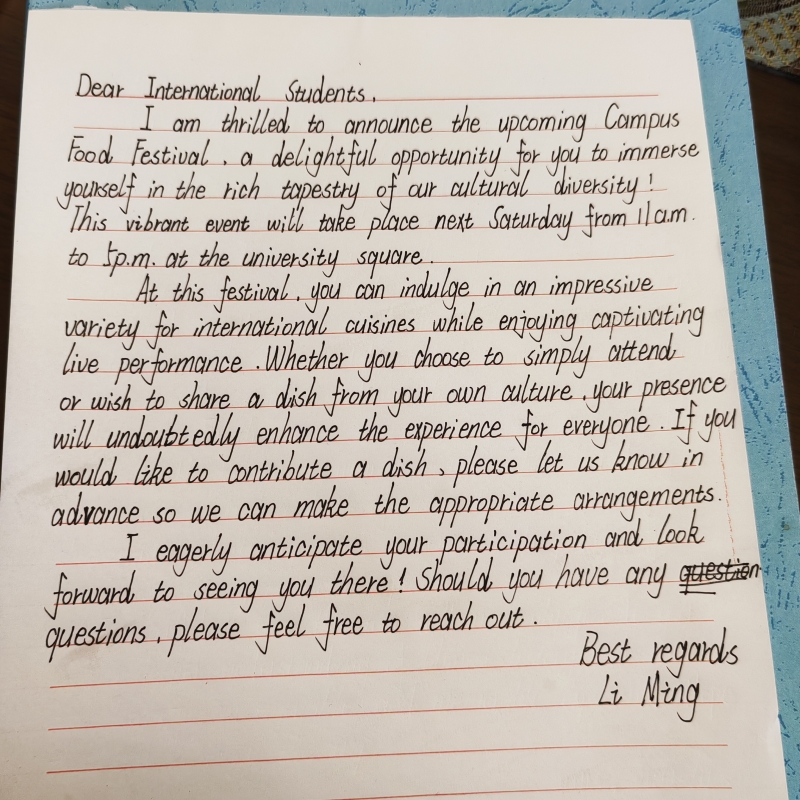 Dear International Students,
I am thrilled to announce the upcoming Campus
Food Festival, a delightful opportunity for you to immerse
yourself in the rich tapestry of our cultural diversity!
This vibrant event will take place next Saturday from 11a.m.
to 5p.m. at the university square.
At this festival, you can indulge in an impressive
variety for international cuisines while enjoying captivating
live performance. Whether you choose to simply attend
or wish to share a dish from your own culture, your presence
will undoubtedly enhance the experience for everyone. If you
would like to contribute a dish, please let us know in
advance so we can make the appropriate arrangements.
I eagerly anticipate your participation and look
forward to seeing you there! Should you have any question
questions, please feel free to reach out.
Best regards
Li Ming